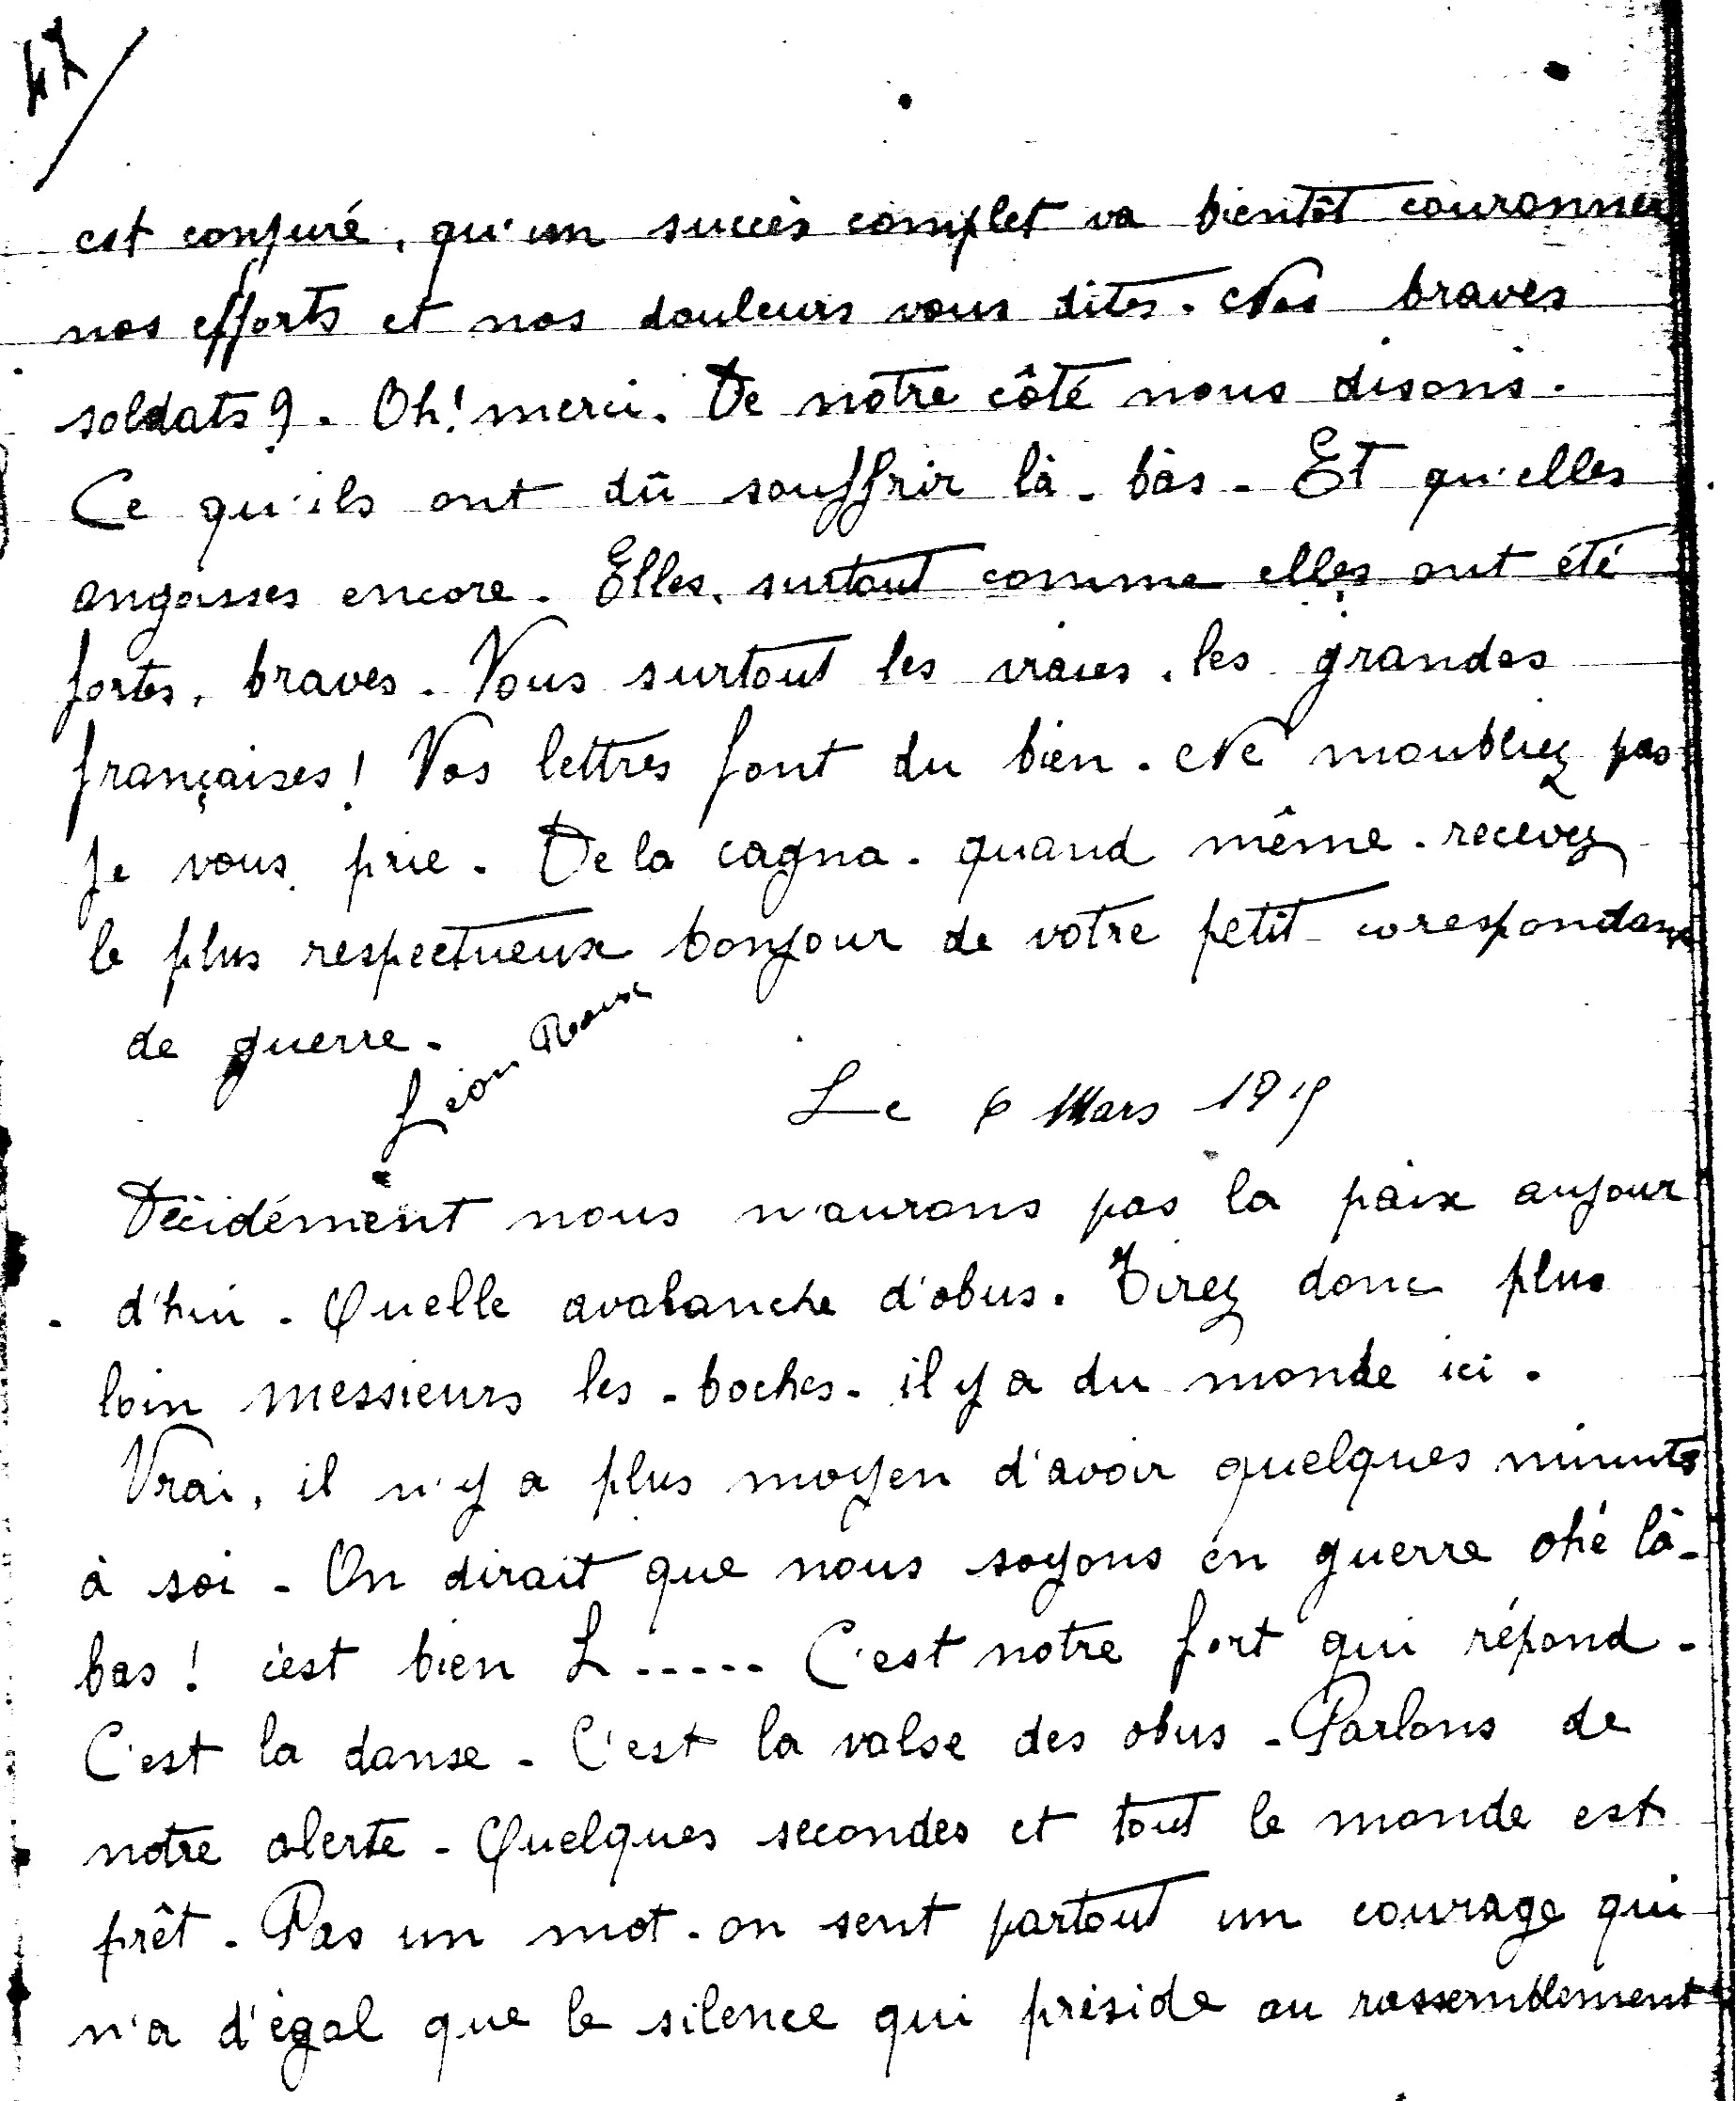 47
est conjuré, qu'un succès complet va bientôt couronner
nos efforts et nos douleurs vous dites. Nos braves
soldats ?. Oh! merci. De notre côté nous disons.
Ce qu'ils ont dû souffrir là-bas. Et qu'elles
angoisses encore. Elles, surtout comme elles ont été
fortes, braves. Vous surtout les vraies, les grandes
françaises! Vos lettres font du bien. Ne moubliez pas
je vous prie. De la cagna. quand même. recevez
le plus respectueux bonjour de votre petit correspondant
de guerre.
Léon Roux
Le 6 Mars 1915
Décidément nous n'aurons pas la paix aujour
d'hui. Quelle avalanche d'obus. Tirez donc plus
loin messieurs les boches. il y a du monde ici.
Vrai, il n'y a plus moyen d'avoir quelques minutes
à soi - On dirait que nous soyons en guerre ohé là-
bas! c'est bien L..... C'est notre fort qui répond -
C'est la danse - C'est la valse des obus - Parlons de
notre alerte - Quelques secondes et tout le monde est
prêt. Pas un mot. on sent partout un courage qui
n'a d'égal que le silence qui préside au rassemblement